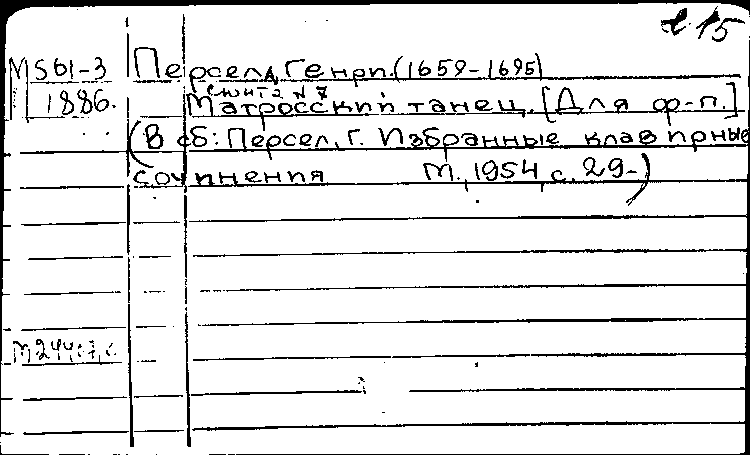 215
М561-3 Персел, Генри. (1659-1695)
Сюита №7
1886. Матросский танец. [Для ф-п.]
(В сб: Персел, Г. Избранные клавирные
сочинения М., 1954, с. 29-)